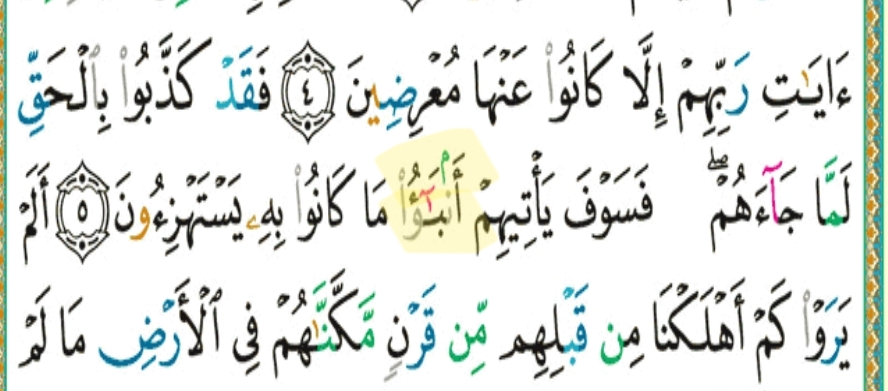 ءَايَٰتِ رَبِّهِمْ إِلَّا كَانُوا۟ عَنْهَا مُعْرِضِينَ ٤ فَقَدْ كَذَّبُوا۟ بِٱلْحَقِّ
لَمَّا جَآءَهُمْ ۖ فَسَوْفَ يَأْتِيهِمْ أَنۢبَٰٓؤُا۟ مَا كَانُوا۟ بِهِۦ يَسْتَهْزِءُونَ ٥ أَلَمْ
يَرَوْا۟ كَمْ أَهْلَكْنَا مِن قَبْلِهِم مِّن قَرْنٍ مَّكَّنَّٰهُمْ فِى ٱلْأَرْضِ مَا لَمْ